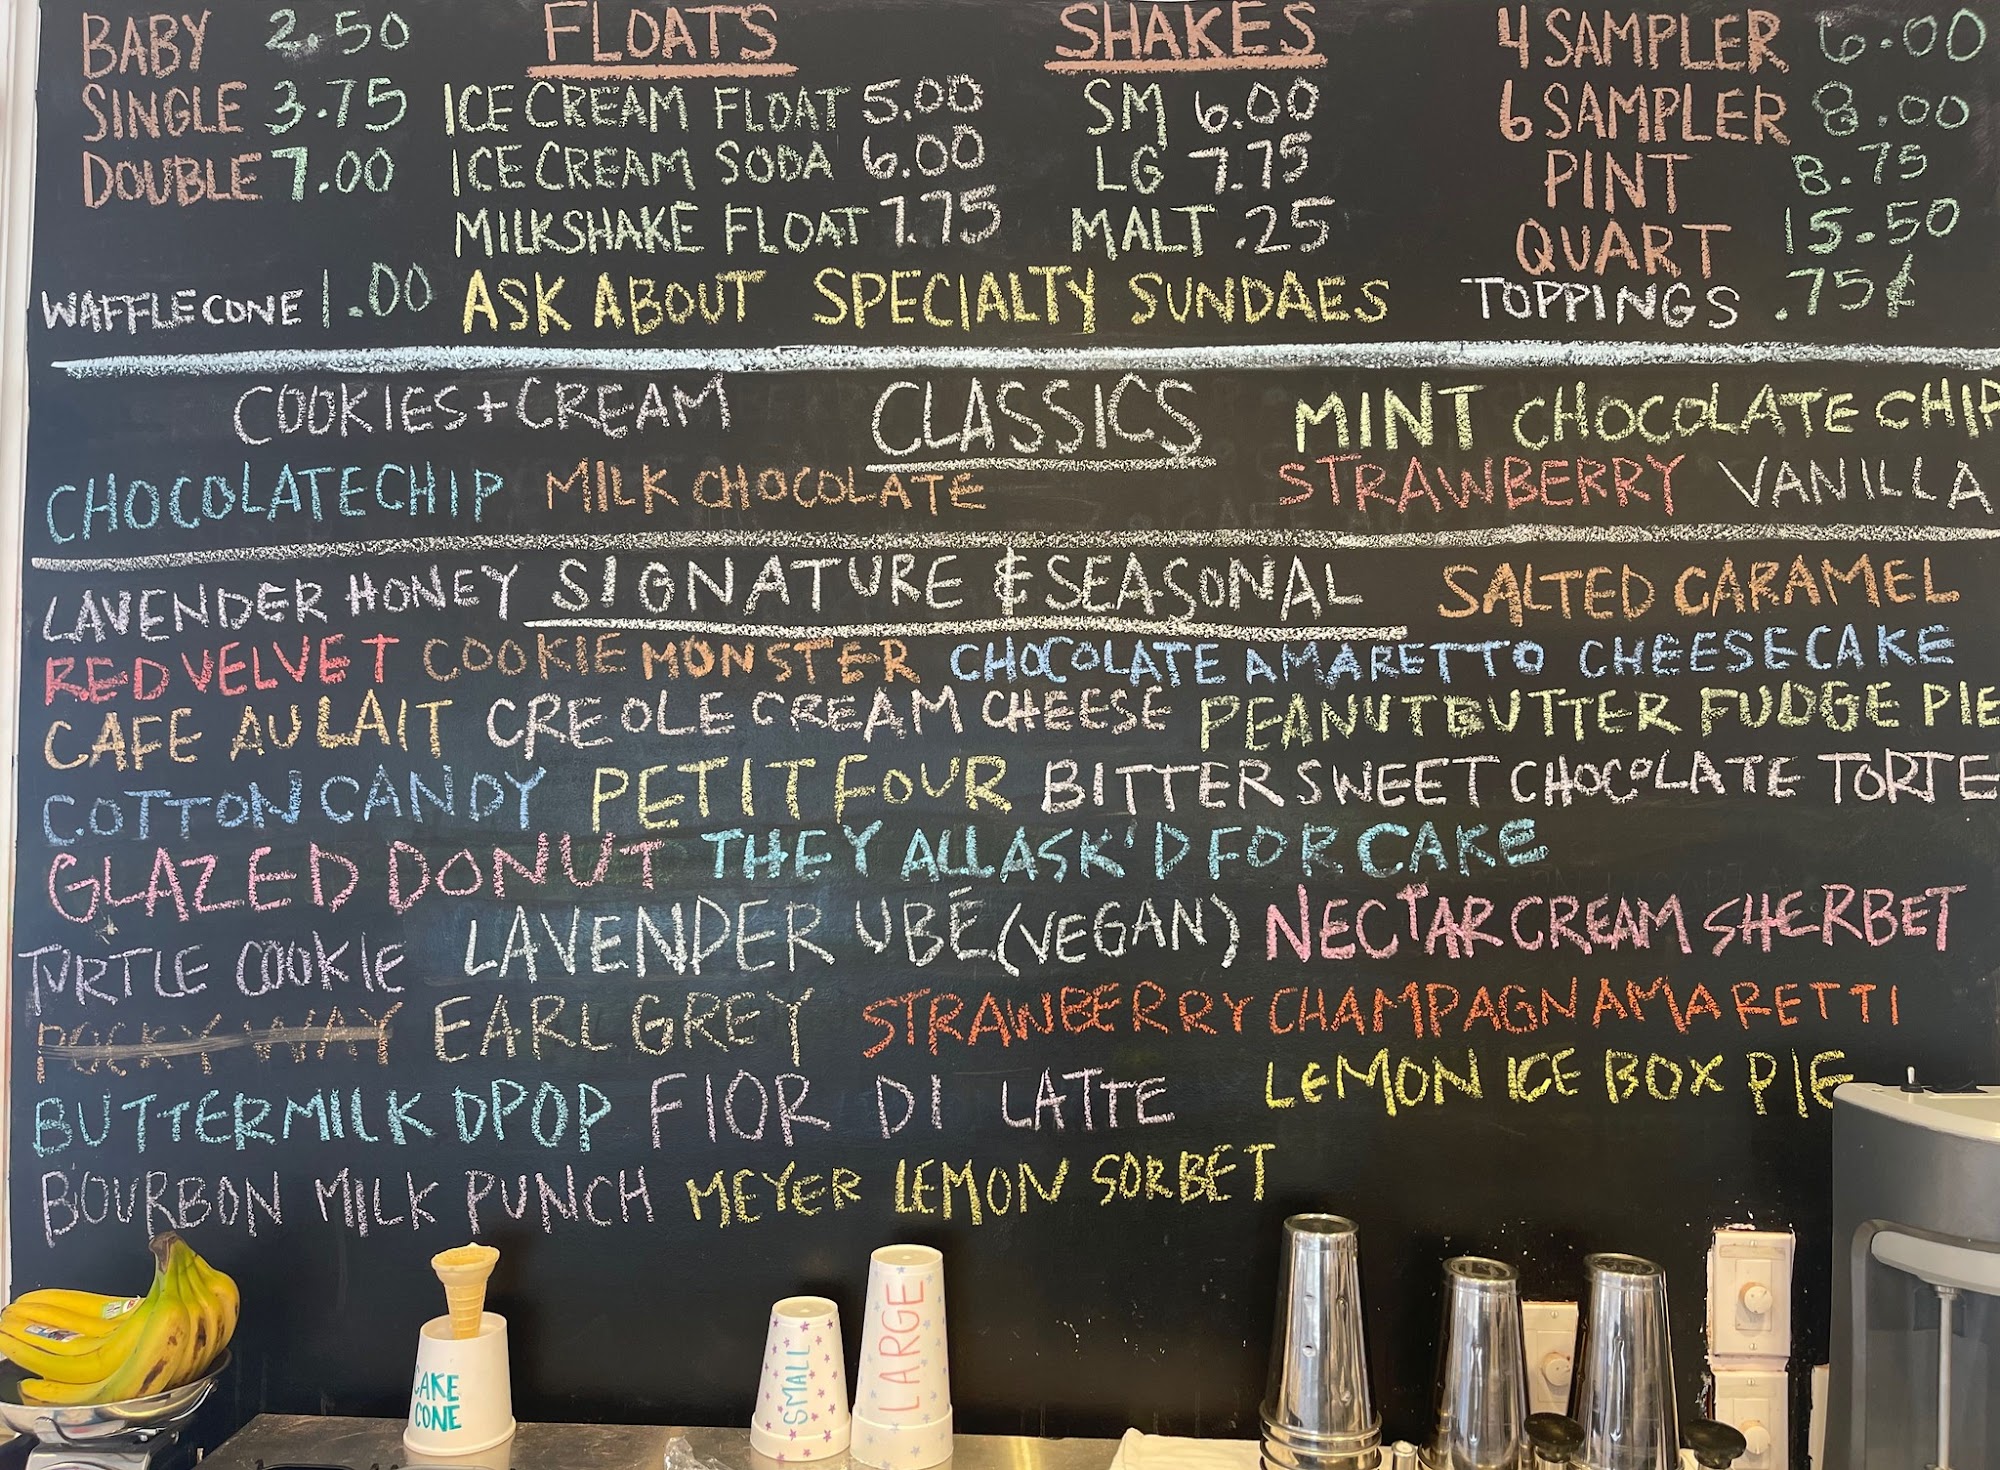 BABY 2.50 FLOATS SHAKES 4 SAMPLER 6.00
SINGLE 3.75 ICE CREAM FLOAT 5.00 SM 6.00 6 SAMPLER 8.00
DOUBLE 7.00 ICE CREAM SODA 6.00 LG 7.75 PINT 8.75
MILKSHAKE FLOAT 7.75 MALT .25 QUART 15.50
WAFFLE CONE 1.00 ASK ABOUT SPECIALTY SUNDAES TOPPINGS .75¢
COOKIES + CREAM CLASSICS MINT CHOCOLATE CHIP
CHOCOLATE CHIP MILK CHOCOLATE STRAWBERRY VANILLA
LAVENDER HONEY SIGNATURE & SEASONAL SALTED CARAMEL
RED VELVET COOKIE MONSTER CHOCOLATE AMARETTO CHEESECAKE
CAFE AU LAIT CREOLE CREAM CHEESE PEANUTBUTTER FUDGE PIE
COTTON CANDY PETIT FOUR BITTERSWEET CHOCOLATE TORTE
GLAZED DONUT THEY ALL ASK'D FOR CAKE
TURTLE COOKIE LAVENDER UBÉ (VEGAN) NECTAR CREAM SHERBET
POCKY WAY EARL GREY STRAWBERRY CHAMPAGN AMARETTI
BUTTERMILK DPOP FIOR DI LATTE LEMON ICE BOX PIE
BOURBON MILK PUNCH MEYER LEMON SORBET
CAKE
CONE
SMALL
LARGE